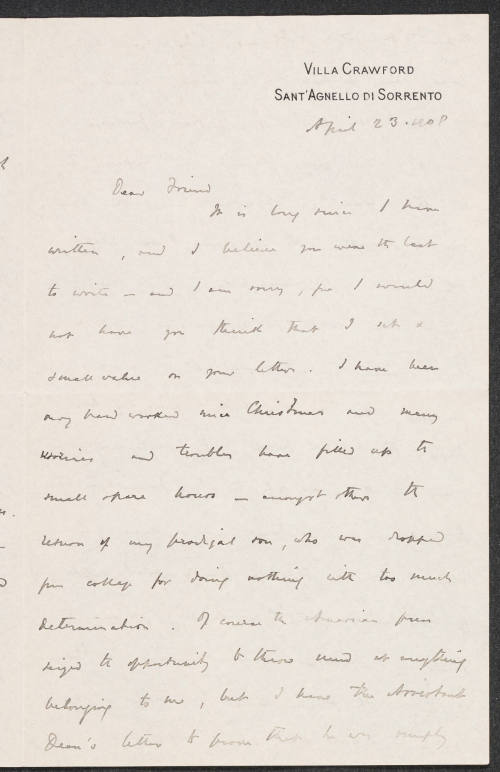 VILLA CRAWFORD
SANT'AGNELLO DI SORRENTO
April 23. 1908
Dear Friend
It is long since I have
written, and I believe you were the last
to write – and I am sorry, for I would
not have you think that I set a
small value on your letters. I have been
very hard worked since Christmas and many
worries and troubles have filled up the
small spare hours – amongst others the
return of my prodigal son, who was dropped
from college for doing nothing with too much
determination. Of course the American press
seized the opportunity to throw mud at anything
belonging to me, but I have the Assistant
Dean's letter to prove that he was simply